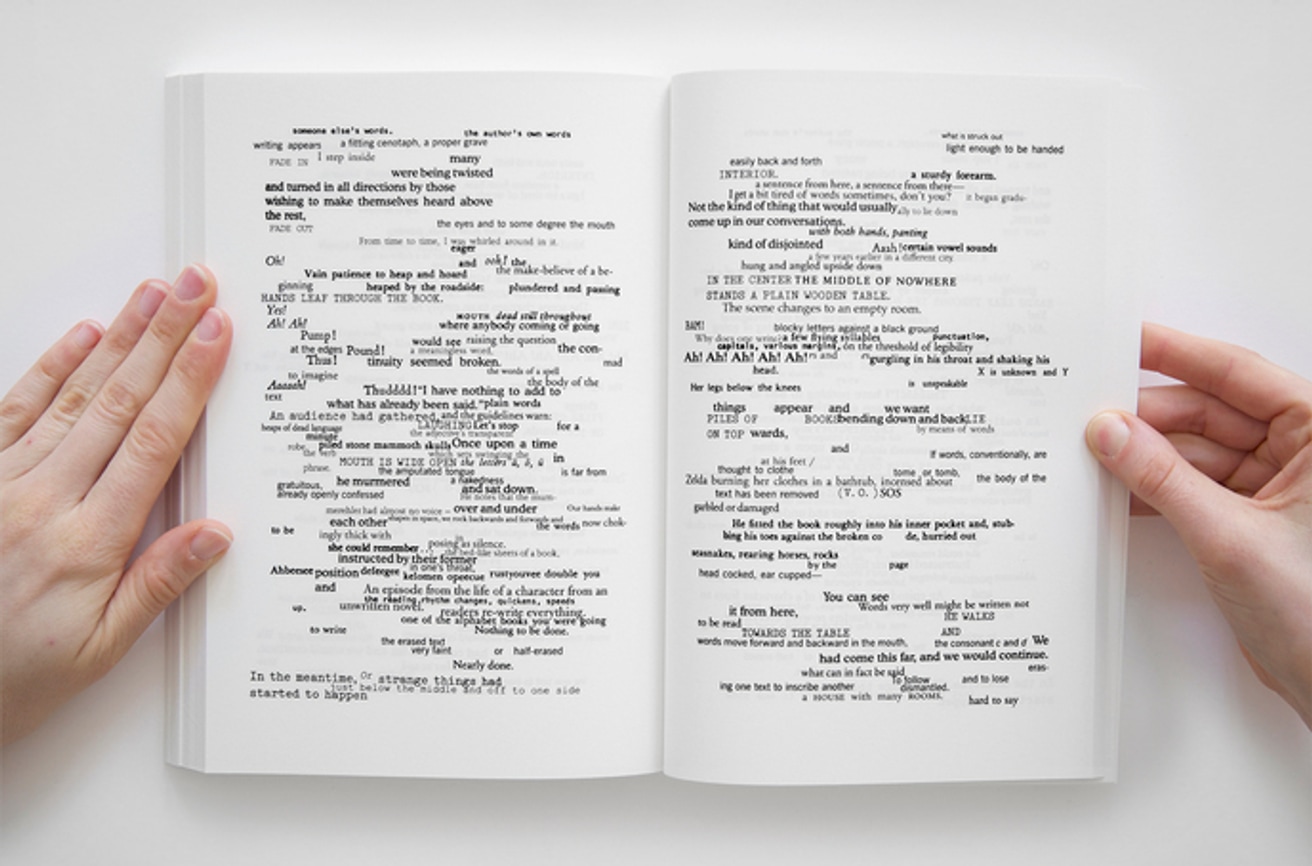 someone else's words. the author's own words
writing appears a fitting cenotaph, a proper grave
FADE IN I step inside many
were being twisted
and turned in all directions by those
wishing to make themselves heard above
the rest,
the eyes and to some degree the mouth
FADE OUT
From time to time, I was whirled around in it.
eager
Oh! and ooh! the
Vain patience to heap and hoard the make-believe of a be-
ginning heaped by the roadside: plundered and passing
HANDS LEAF THROUGH THE BOOK.
Yes!
MOUTH dead still throughout
Ah! Ah! where anybody coming or going
Pump! would see raising the question
at the edges Pound! a meaningless word, the con-
Thus! tinuity seemed broken. mad
the words of a spell
to imagine
the body of the
Aaaaah! Thudddd! "I have nothing to add to
text
what has already been said." plain words
An audience had gathered, and the guidelines warn:
heaps of dead language LAUGHING Let's stop for a
minute the adjective's transparent
robe, the verb piled stone mammoth skulls Once upon a time
which sets swinging the
MOUTH IS WIDE OPEN the letters in
phrase. the amputated tongue is far from
he murmered a nakedness
gratuitous, and sat down.
already openly confessed He notes that the mum-
merehler had almost no voice – over and under Our hands make
each other shapes in space, we rock backwards and forwards and the words now chok-
to be ingly thick with in
she could remember posing as silence.
the bed-like sheets of a book,
instructed by their former
in one's throat,
Ahbenee position deleegee kelomen opeecue rustyouvee double you
and An episode from the life of a character from an
the reading rhythm changes, quickens, speeds
up. unwritten novel. readers re-write everything.
one of the alphabet books you were going
to write Nothing to be done.
the erased text
very faint or half-erased
Nearly done.
In the meantime, or strange things had
just below the middle and off to one side
started to happen
what is struck out
light enough to be handed
easily back and forth
INTERIOR. a sturdy forearm.
a sentence from here, a sentence from there—
I get a bit tired of words sometimes, don't you? it began gradu-
Not the kind of thing that would usually ally to lie down
come up in our conversations.
with both hands, panting
kind of disjointed Aash! certain vowel sounds
a few years earlier in a different city.
hung and angled upside down
IN THE CENTER THE MIDDLE OF NOWHERE
STANDS A PLAIN WOODEN TABLE.
The scene changes to an empty room.
BAM! blocky letters against a black ground
Why does one write a few flying syllables punctuation,
capitals, various margins, on the threshold of legibility
Ah! Ah! Ah! Ah! Ah! and gurgling in his throat and shaking his
head. X is unknown and Y
is unspeakable
Her legs below the knees
things appear and we want
PILES OF BOOKS bending down and back LIE
by means of words
ON TOP words,
and
If words, conventionally, are
at his feet /
thought to clothe tome or tomb,
Zelda burning her clothes in a bathtub, incensed about the body of the
text has been removed (V.O.) SOS
garbled or damaged
He fitted the book roughly into his inner pocket and, stub-
bing his toes against the broken co de, hurried out
seasnakes, rearing horses, rocks
by the page
head cocked, ear cupped—
You can see
Words very well might be written not
it from here, HE WALKS
to be read
TOWARDS THE TABLE AND
words move forward and backward in the mouth, the consonant c and d We
had come this far, and we would continue.
what can in fact be said eras-
To follow and to lose
ing one text to inscribe another dismantled.
a HOUSE with many ROOMS. hard to say